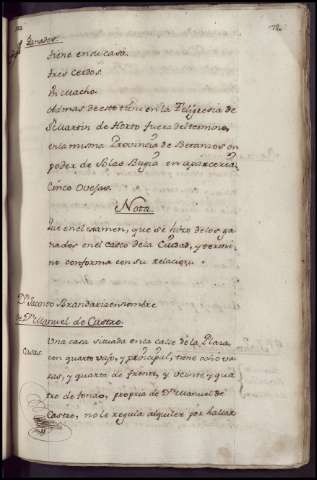 Ganados.
tiene en su casa
tres Cerdos.
Un Macho.
Ademas de este tiene en la Feligresia de
Sn. Martin de Horto fuera del termino,
en la misma Provincia de Betanzos en
poder de Solas Bugia en aparceria
Cinco Ovejas.
Nota.
Que en el examen, que se hizo de los ga-
nados en el casco de la Ciudad, y termi-
no conforma con su relazion.
Dn. Jacinto Brandariz en nombre
de Dn. Manuel de Castro.
Casas. Una casa situada en la calle de la Plaza,
con quarto vajo, y principal, tiene ocho va-
ras, y quarta de frente, y veinte y qua-
tro de fondo, propria de Dn. Manuel de
Castro, no le regula alquiler por hallar